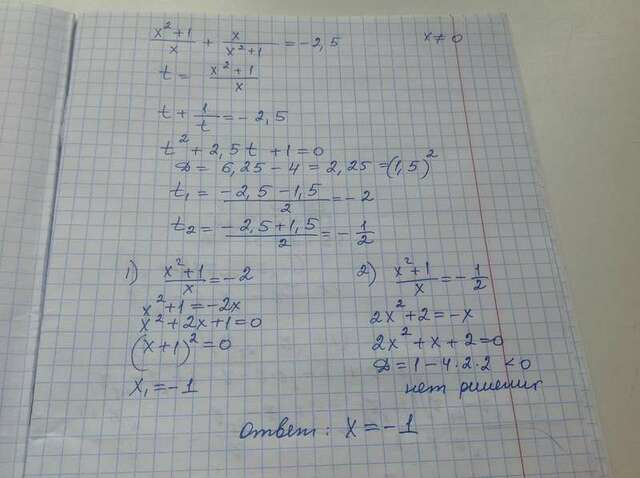 (x²+1)/x + x/(x²+1) = -2,5    x ≠ 0
t = (x²+1)/x
t + 1/t = -2,5
t² + 2,5t + 1 = 0
D = 6,25 - 4 = 2,25 = (1,5)²
t₁ = (-2,5 - 1,5)/2 = -2
t₂ = (-2,5 + 1,5)/2 = -1/2
1) (x²+1)/x = -2
x² + 1 = -2x
x² + 2x + 1 = 0
(x+1)² = 0
x₁ = -1
2) (x²+1)/x = -1/2
2x² + 2 = -x
2x² + x + 2 = 0
D = 1 - 4·2·2 < 0
нет решения
Ответ: x = -1